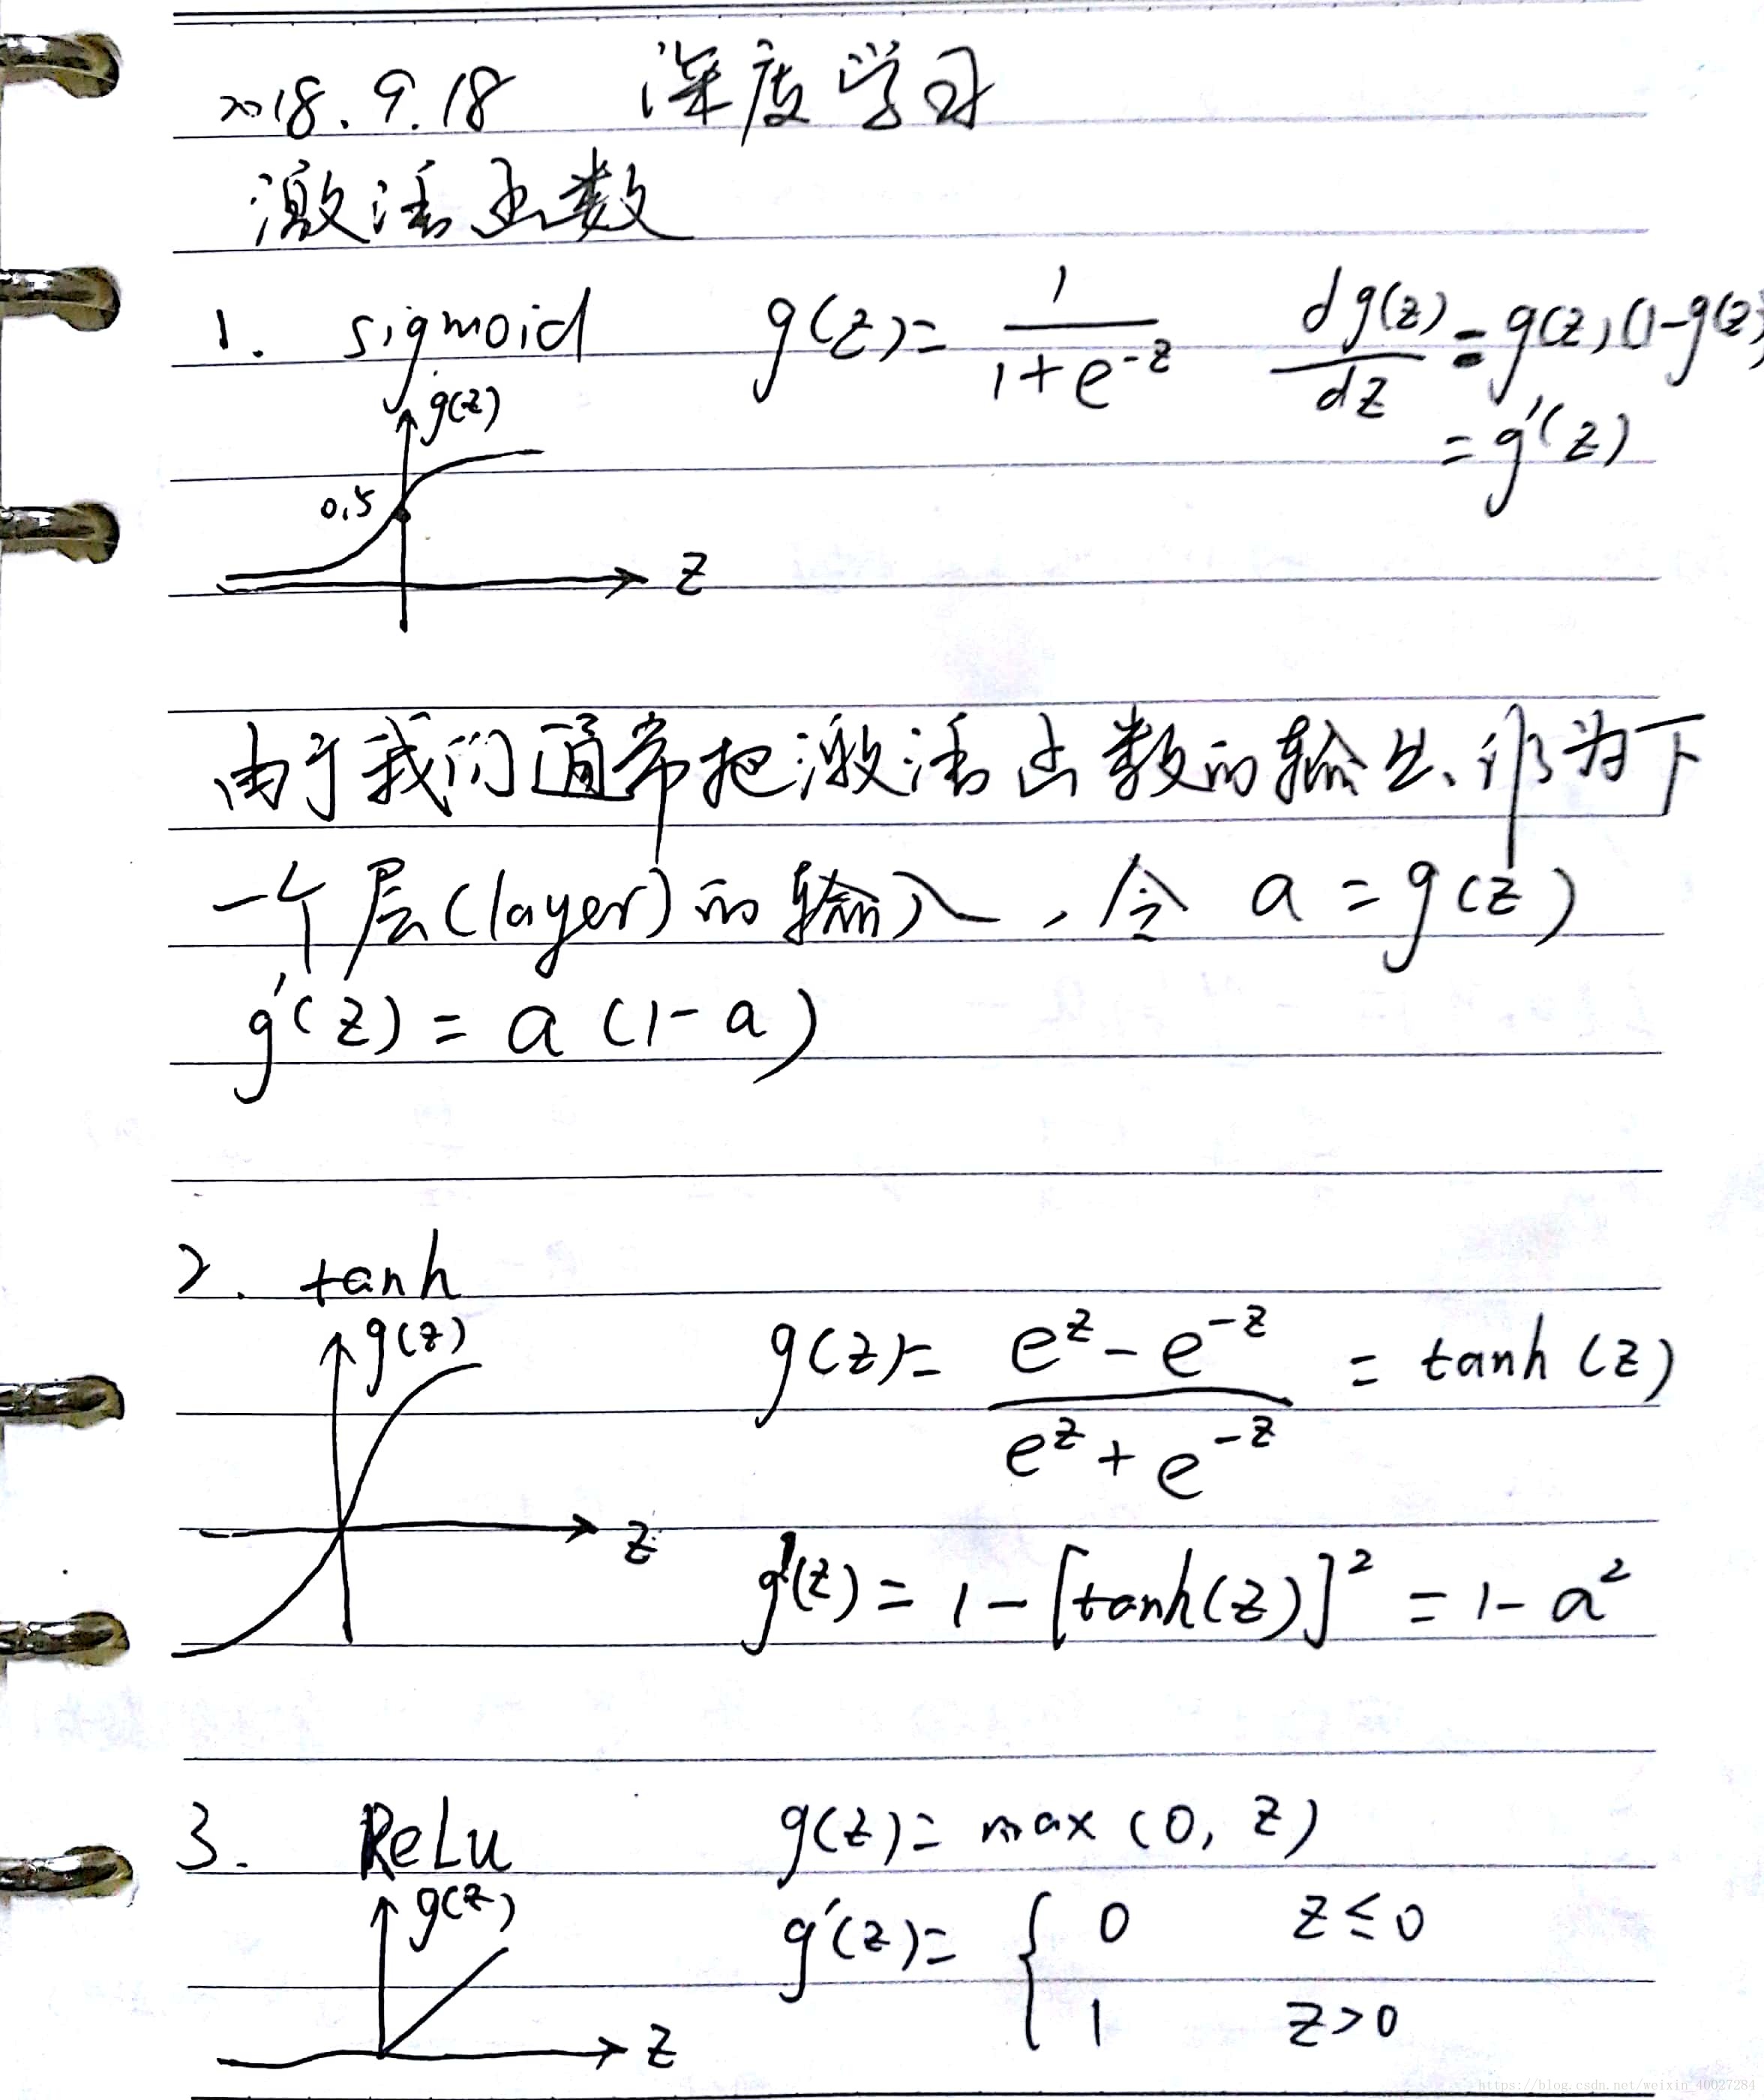 2018.9.18 深度学习
激活函数
1. sigmoid g(z)= 1/(1+e^-z) dg(z)/dz = g(z)(1-g(z)
= g'(z)
g(z)
0.5
z
由于我们通常把激活函数的输出、作为下
一个层(layer)的输入,令 a = g(z)
g'(z) = a (1-a)
2. tanh
g(z)
g(z)= (e^z - e^-z)/(e^z + e^-z) = tanh(z)
z
g'(z) = 1-[tanh(z)]^2 = 1-a^2
3. ReLu g(z)= max(0, z)
g(z)
g'(z)= { 0 z≤0
1 z>0
z
https://blog.csdn.net/weixin_40027284